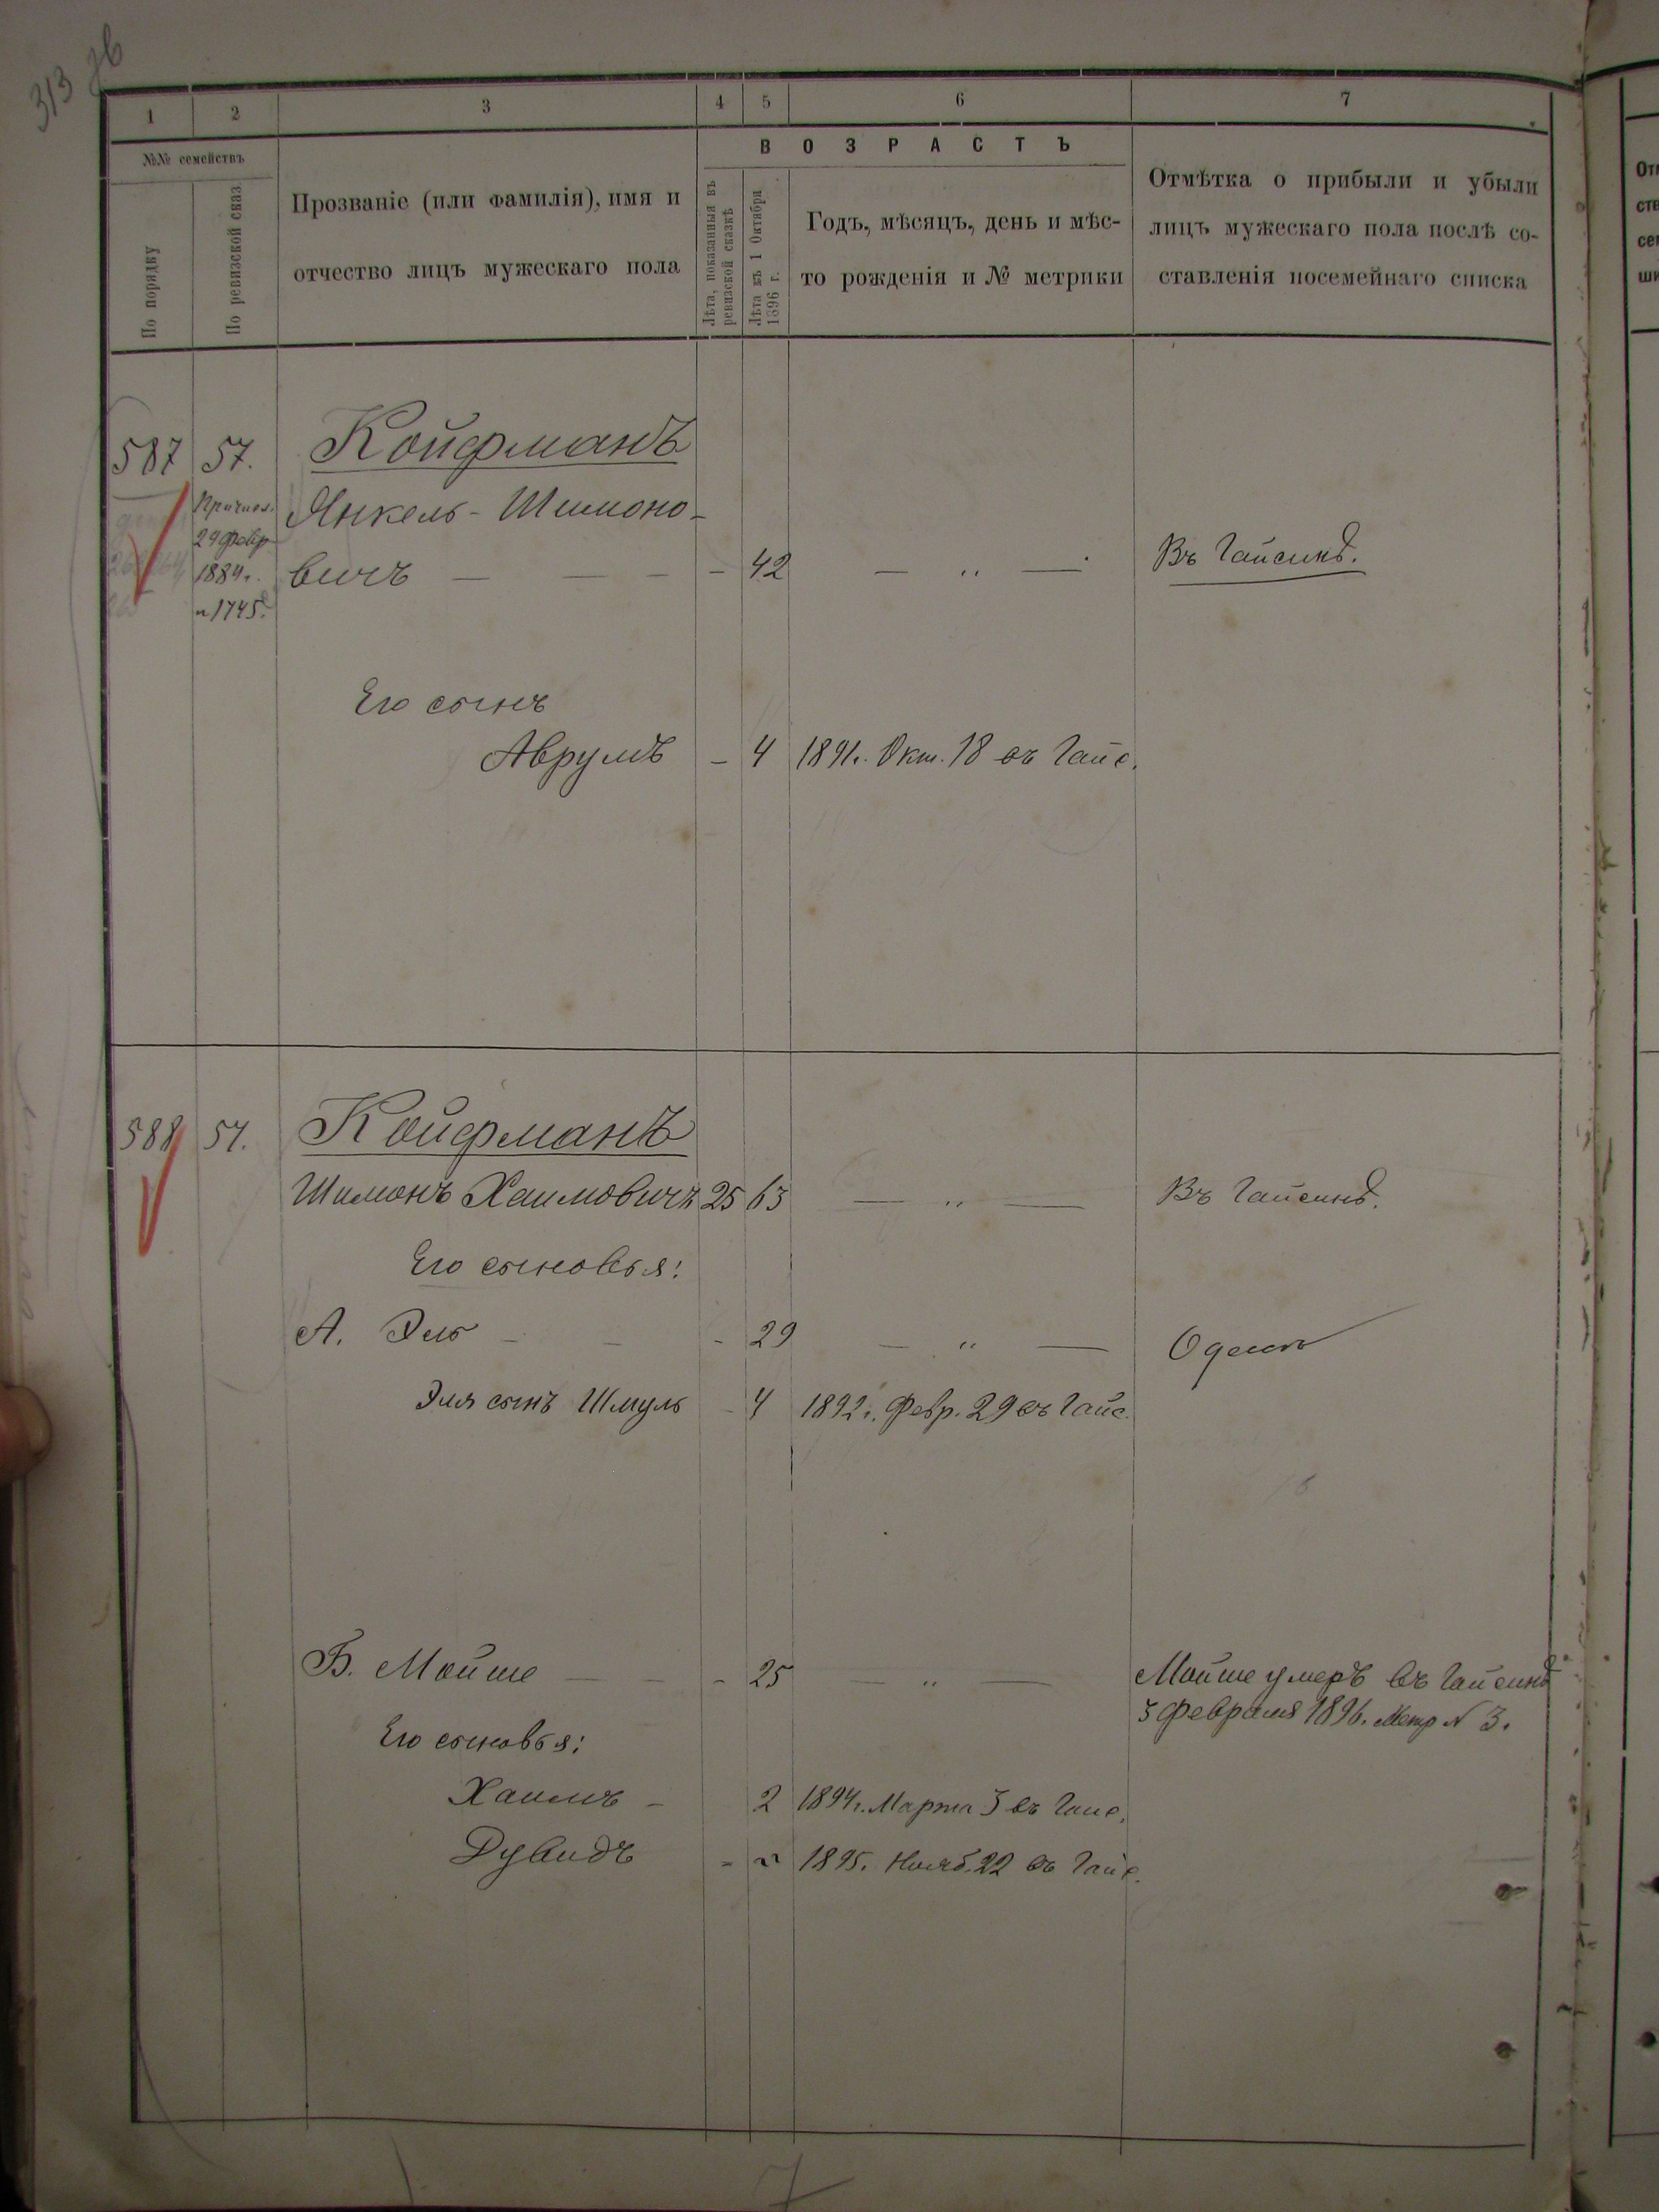 313
1 2 3 4 5 6 7
№№ семействъ
По порядку
По ревизской сказ.
Прозваніе (или фамилія), имя и
отчество лицъ мужескаго пола
ВОЗРАСТЪ
Лѣта, показанныя въ
ревизской сказкѣ
Лѣта къ 1 Октября
1896 г.
Годъ, мѣсяцъ, день и мѣс-
то рожденія и № метрики
Отмѣтка о прибыли и убыли
лицъ мужескаго пола послѣ со-
ставленія посемейнаго списка
587 57. Койфманъ
Причисл.
29 Февр
1884 г.
№ 1745.
Янкель-Шимоно-
вичъ — — — - 42 — „ — Въ Гайсинѣ.
Его сынъ
Аврумъ - 4 1891 г. Окт. 18 въ Гайс.
588 57. Койфманъ
Шимонъ Хаимовичъ 25 63 — „ — Въ Гайсинѣ.
Его сыновья:
А. Эль - — - 29 — „ — Одесса
Эля сынъ Шмуль - 4 1892 г. Февр. 29 въ Гайс.
Б. Мойше — — - 25 — „ — Мойше умеръ въ Гайсинѣ
3 Февраля 1896. Метр № 3.
Его сыновья:
Хаимъ - 2 1894 г. Марта 3 въ Гайс.
Дувидъ - „ 1895. Нояб. 22 въ Гайс.